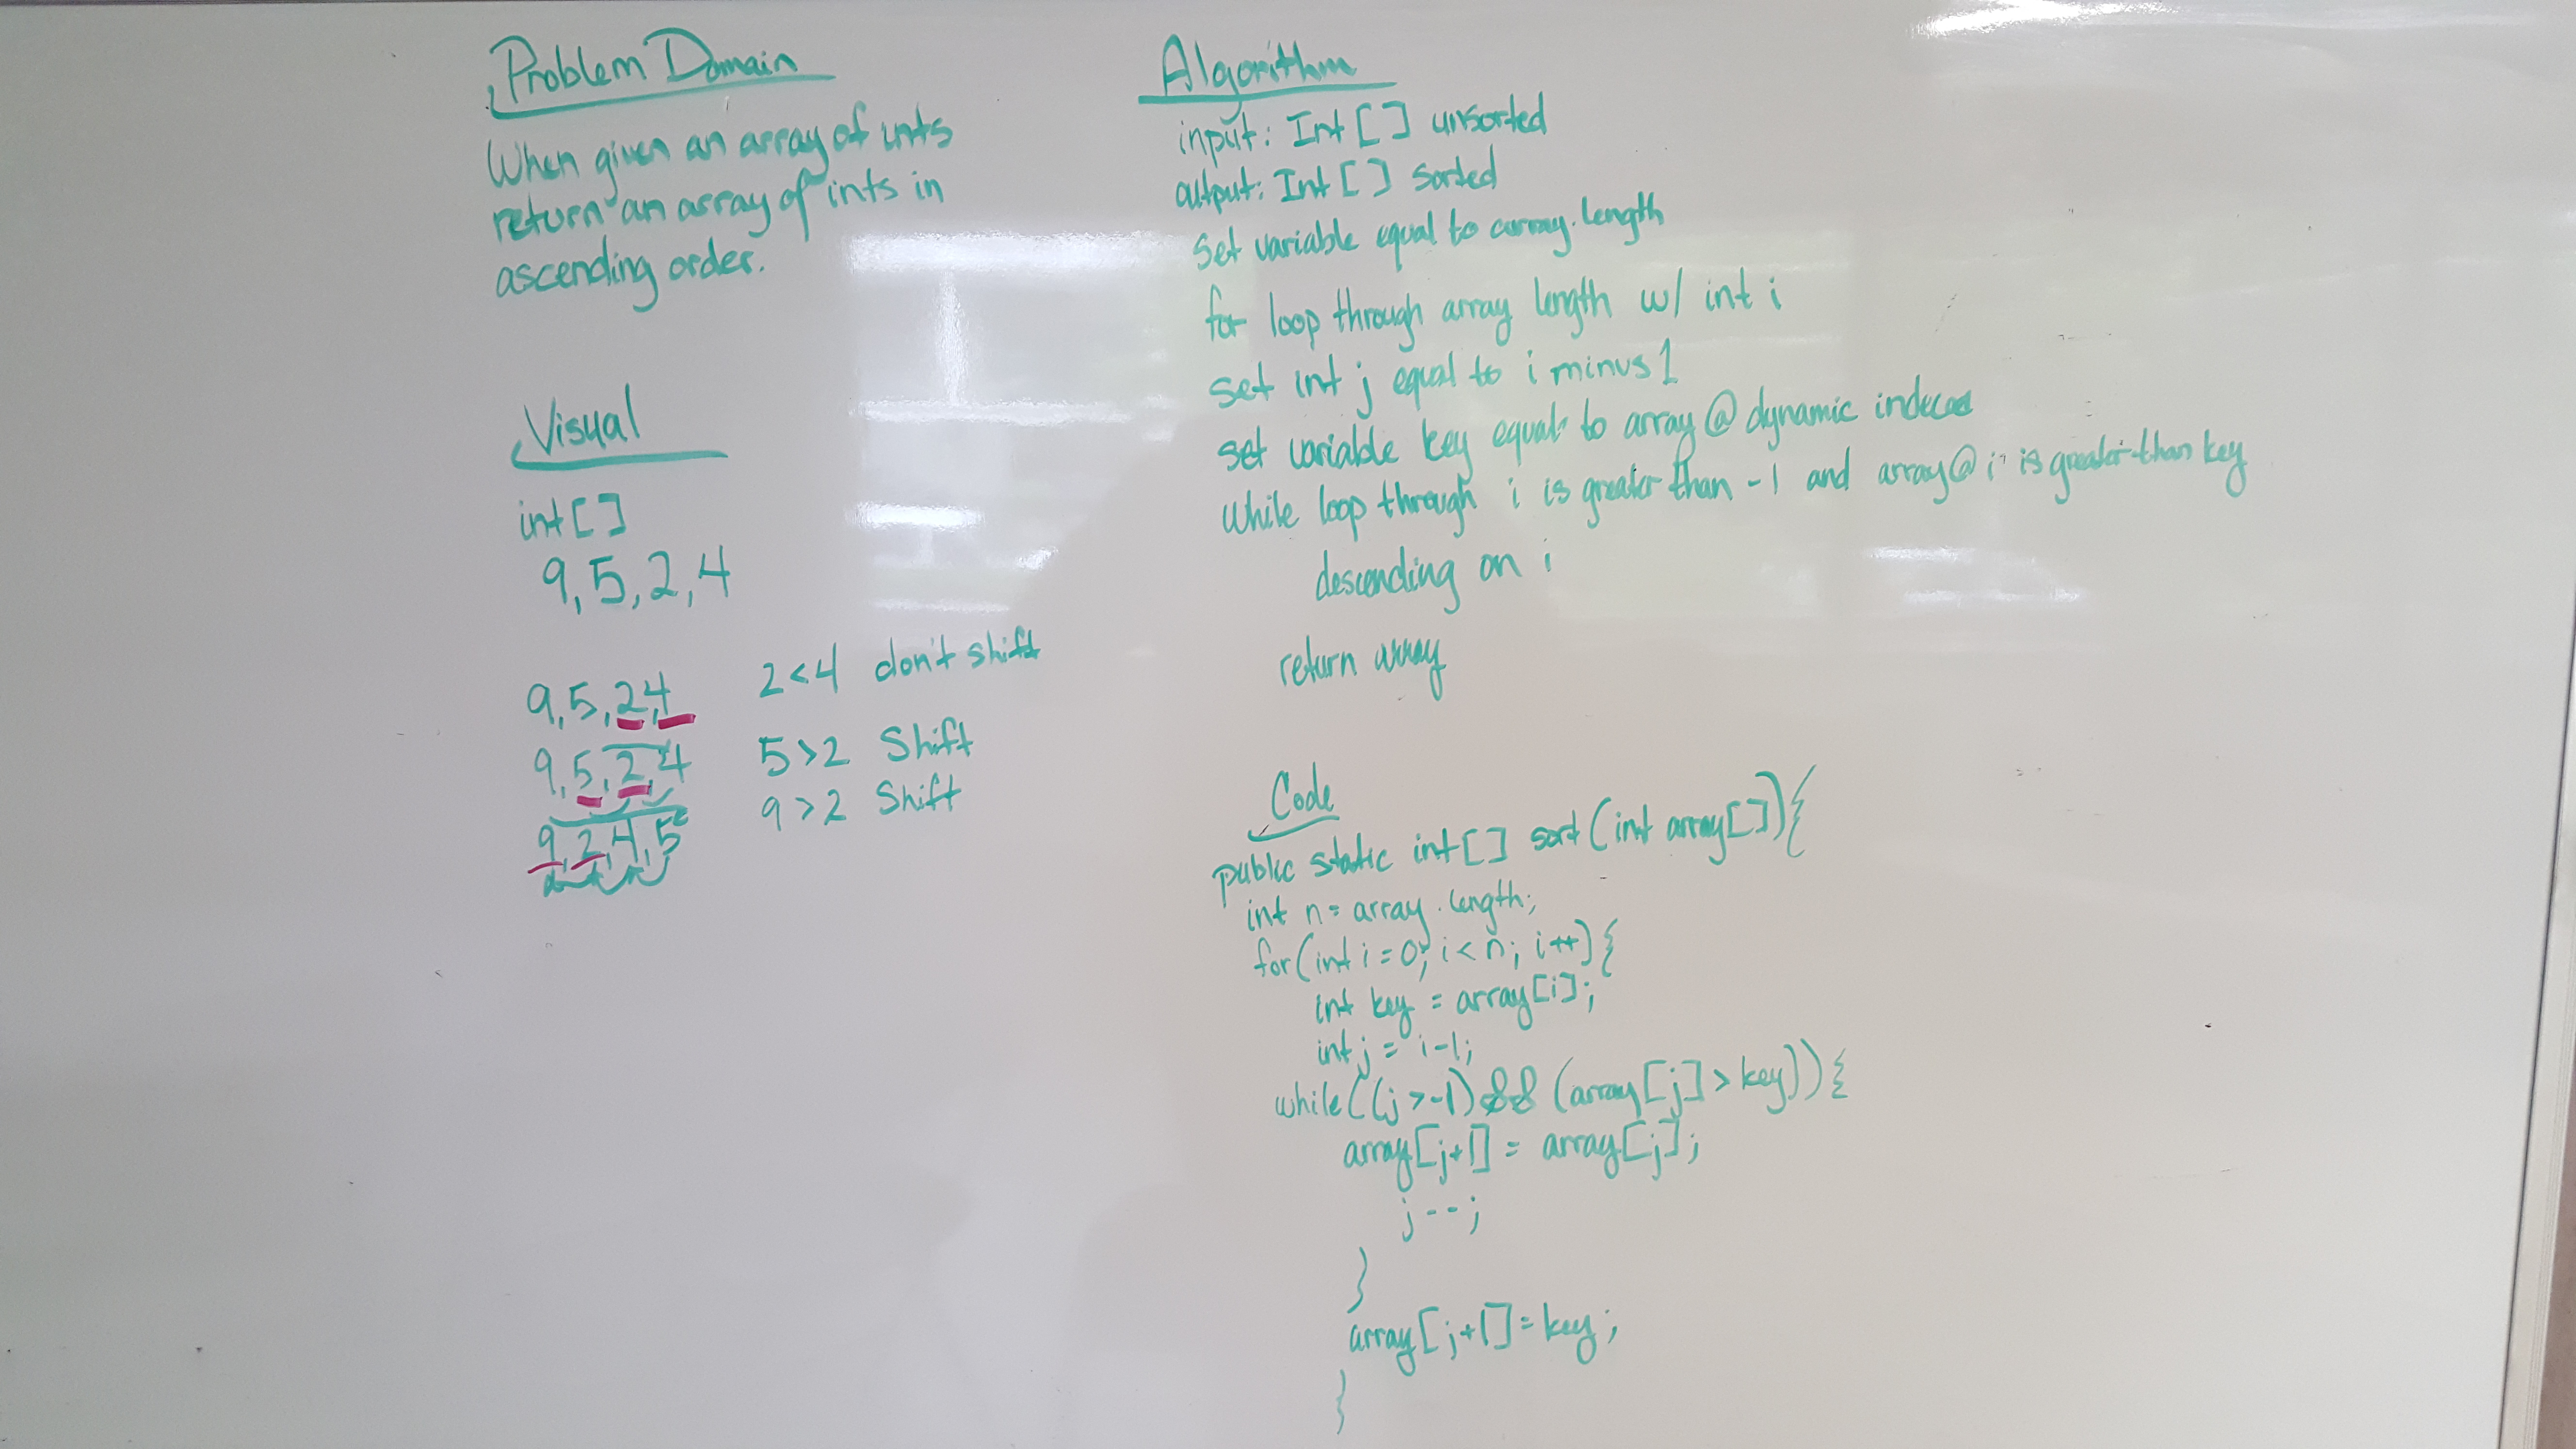 Problem Domain
When given an array of ints
return an array of ints in
ascending order.
Visual
int[]
9,5,2,4
9,5,2,4 2<4 don't shift
9,5,2,4 5>2 Shift
9,2,4,5 9>2 Shift
Algorithm
input: Int[] unsorted
output: Int[] sorted
set variable equal to array.length
for loop through array length w/ int i
set int j equal to i minus 1
set variable key equal to array @ dynamic
while loop through i is greater than -1 and array @ i is greater than key
descending on i
return array
Code
public static int[] sort(int array[]){
int n = array.length;
for(int i = 0; i < n; i++){
int key = array[i];
int j = i-1;
while((j > -1) && (array[j] > key)){
array[j+1] = array[j];
j--;
}
array[j+1] = key;
}